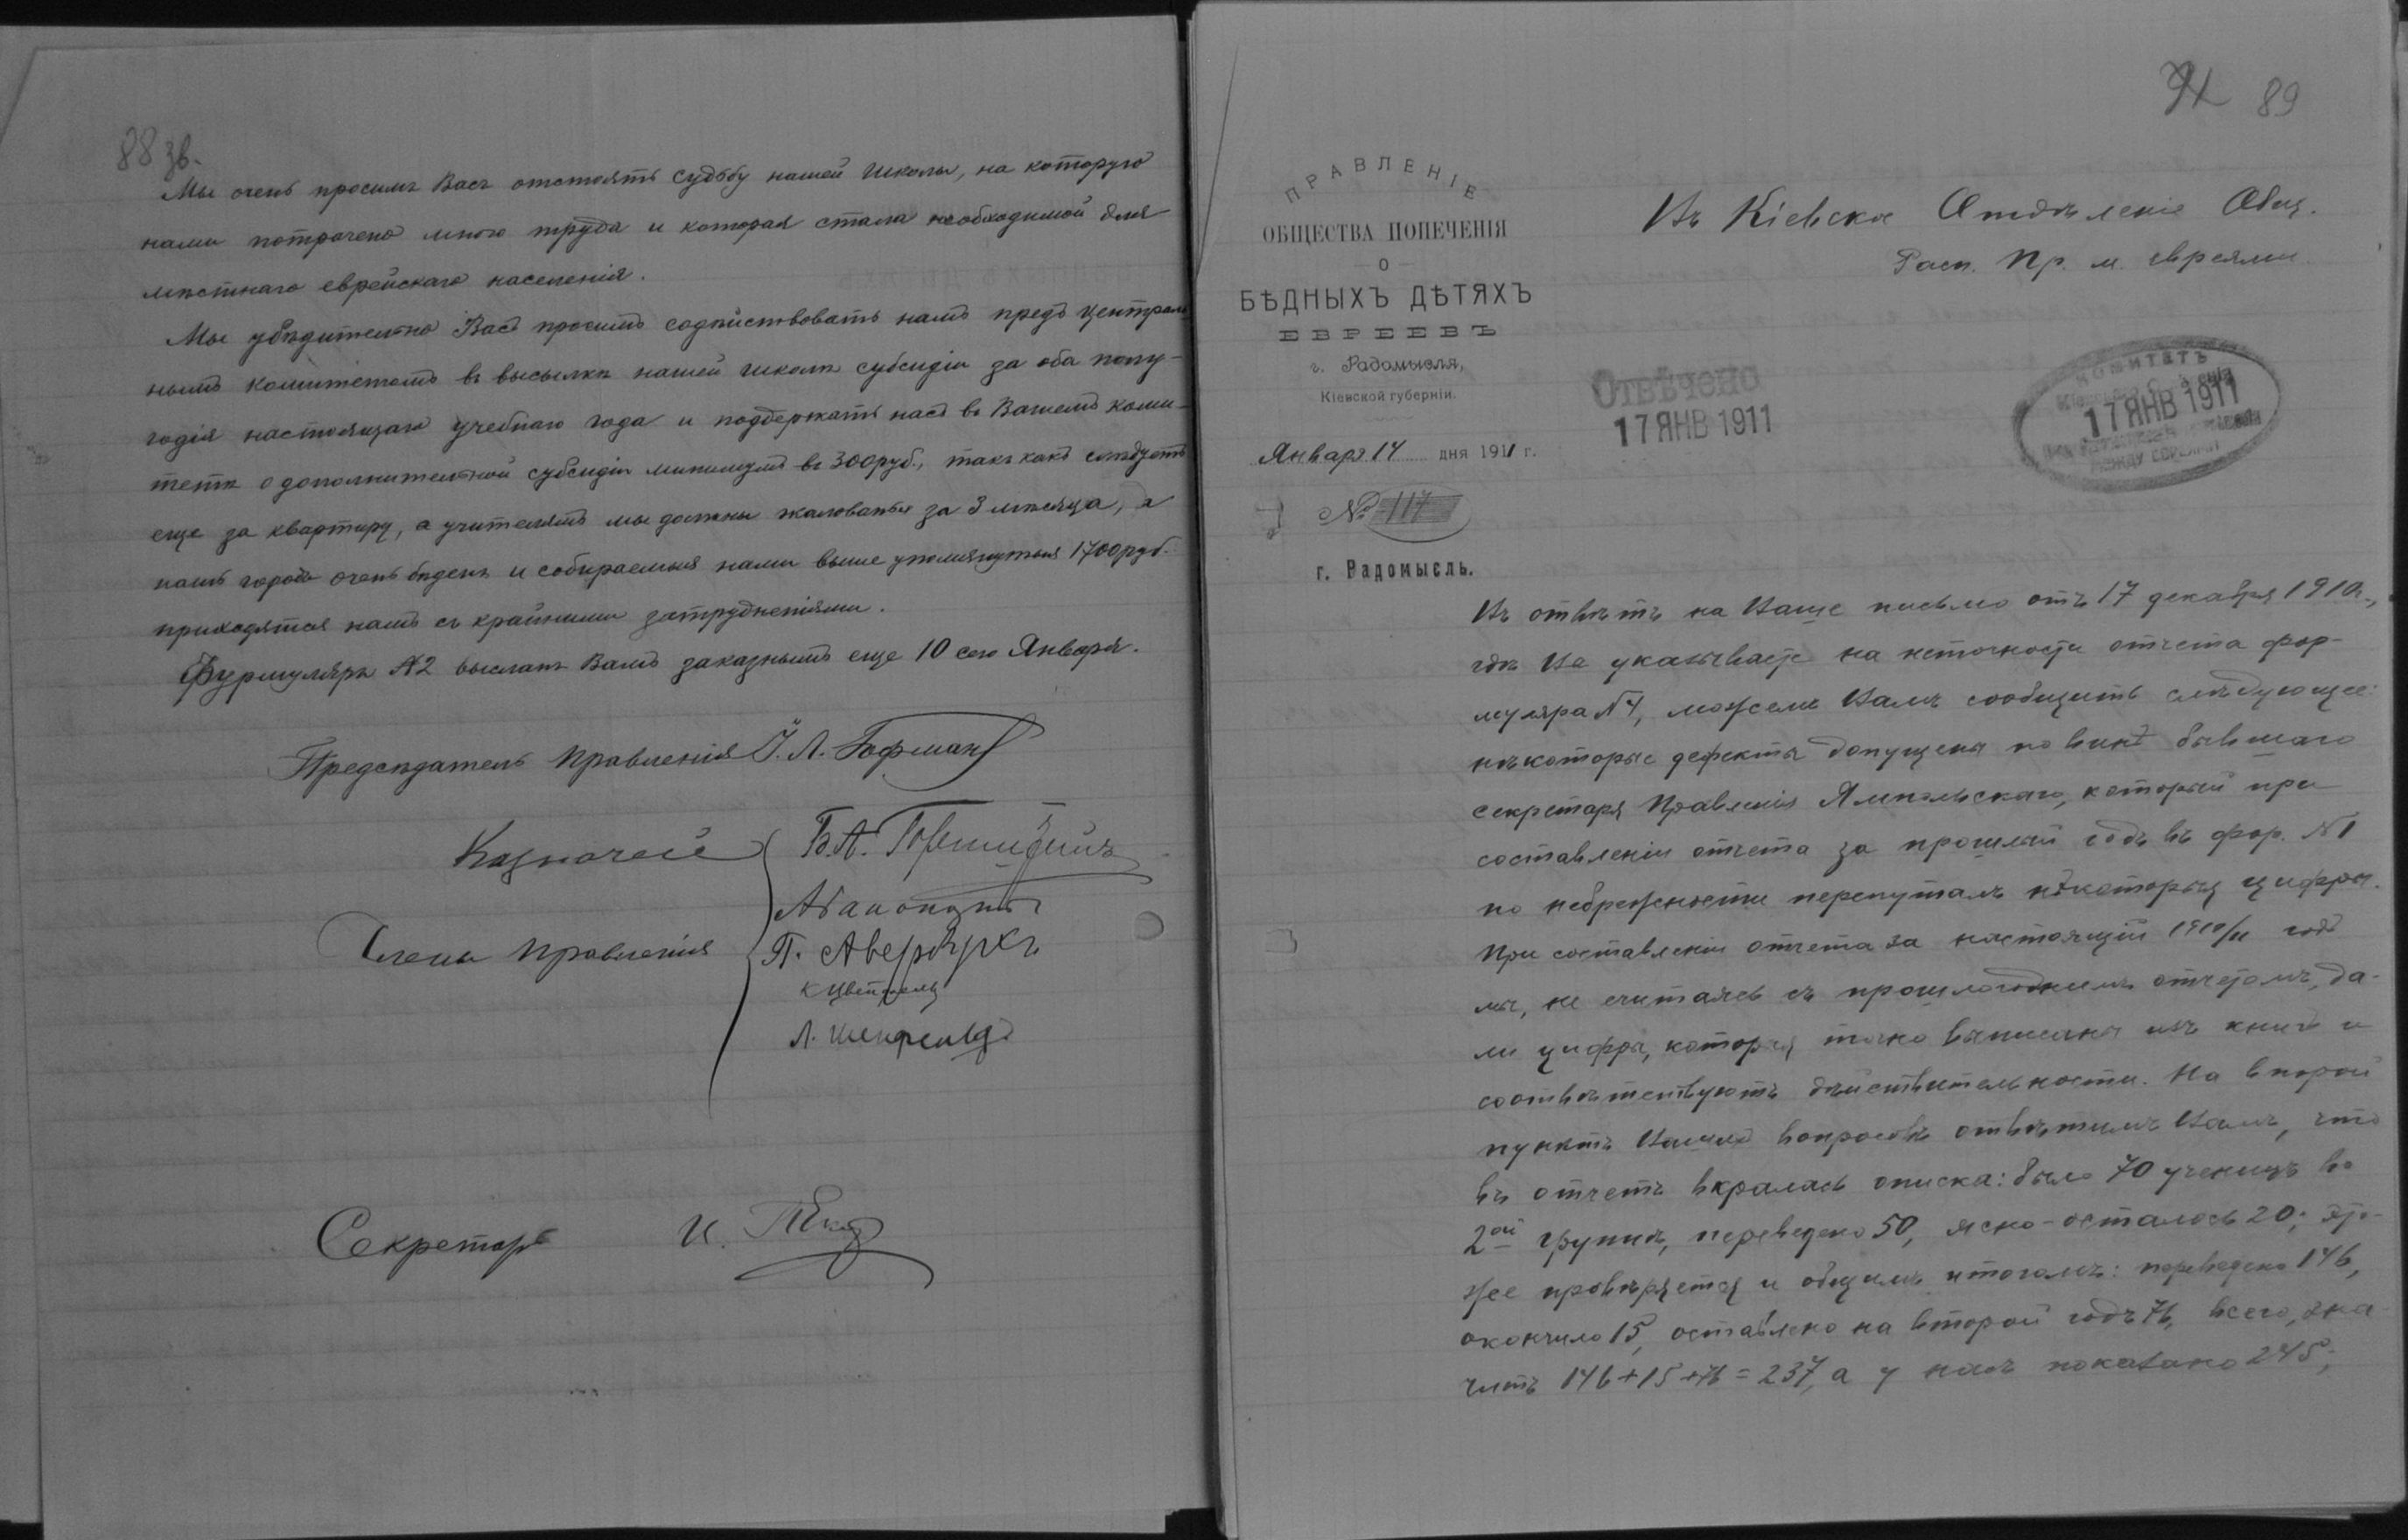 88 зв.
Мы очень просимъ Васъ отстоять судьбу нашей школы, на которую
нами потрачено много труда и которая стала необходимой для
мѣстнаго еврейскаго населенія.
Мы убѣдительно Васъ просимъ содѣйствовать намъ предъ Централь
нымъ комитетомъ въ высылкѣ нашей школѣ субсидіи за оба полу-
годія настоящаго учебнаго года и поддержать насъ въ Вашемъ коми-
тетѣ о дополнительной субсидіи минимумъ въ 300 руб., такъ какъ слѣдуетъ
еще за квартиру, а учителямъ мы должны жалованья за 3 мѣсяца, а
нашъ городъ очень бѣденъ и собираемыя нами выше упомянутыя 1700 руб.
приходятся намъ съ крайними затрудненіями.
Формуляръ №2 высланъ Вамъ заказнымъ еще 10 сего Января.
Предсѣдатель Правленія І. Л. Гофманъ
Казначей Б. А.
Члены Правленія
П. Авербухъ
Секретарь И.
89
ПРАВЛЕНІЕ
ОБЩЕСТВА ПОПЕЧЕНІЯ
О
БѢДНЫХЪ ДѢТЯХЪ
ЕВРЕЕВЪ
г. Радомысля,
Кіевской губерніи.
Января 14 дня 1911 г.
№ 117
г. Радомысль.
Въ Кіевское Отдѣленіе Общ.
Расп. Пр. м. евреями.
Отвѣчено
17 ЯНВ 1911
КОМИТЕТЪ
17 ЯНВ 1911
МЕЖДУ ЕВРЕЯМИ
Въ отвѣтъ на Ваше письмо отъ 17 декабря 1910 г.,
гдѣ Вы указываете на неточности отчета фор-
муляра №4, можемъ Вамъ сообщить слѣдующее:
нѣкоторые дефекты допущены по винѣ бывшаго
секретаря Правленія Ямпольскаго, который при
составленіи отчета за прошлый годъ въ фор. №1
по небрежности перепуталъ нѣкоторыя цифры.
При составленіи отчета за настоящій 1910/11 годъ
мы, не считаясь съ прошлогоднимъ отчетомъ, да-
ли цифры, которыя точно выписаны изъ книгъ и
соотвѣтствуютъ дѣйствительности. На второй
пунктъ Вашихъ вопросовъ отвѣтимъ Вамъ, что
въ отчетъ вкралась описка: было 70 ученицъ во
2ой группѣ, переведено 50, ясно-осталось 20; это-
же провѣряется и общимъ итогомъ: переведено 146,
окончило 15, оставлено на второй годъ 76, всего, зна-
читъ 146+15+76=237, а у насъ показано 245;